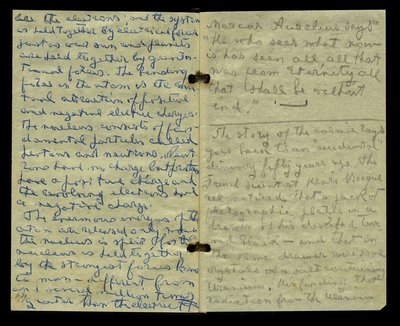 are the electrons, and the system
is held together by electrical forces
just as our sun and planets
are held together by gravita-
tional forces. The binding
force in the atom is the mu-
tual attraction of positive
and negative electric charges.
The nucleus consists of fun-
damental particles called
protons and neutrons. Neut-
rons have no charge but protons
have a positive charge and
the revolving electrons have
a negative charge.
The enormous energies of the
atom are released only when
the nucleus is split. For the
nucleus is held together
by the strongest forces known
to man - different from
and million times
greater than the electric
Marcus Aurelius says
"He who sees what now
is has seen all, all that
was from Eternity, all
that shall be without
end."
The story of the atomic
goes back to an accidental
discovery fifty years ago. The
French scientist Henri Becquer-
el noticed that a pack of
photographic plates in a
drawer of his
and that in
the same drawer were some
crystals of a salt containing
Uranium. His finding that
radiation from the Uranium